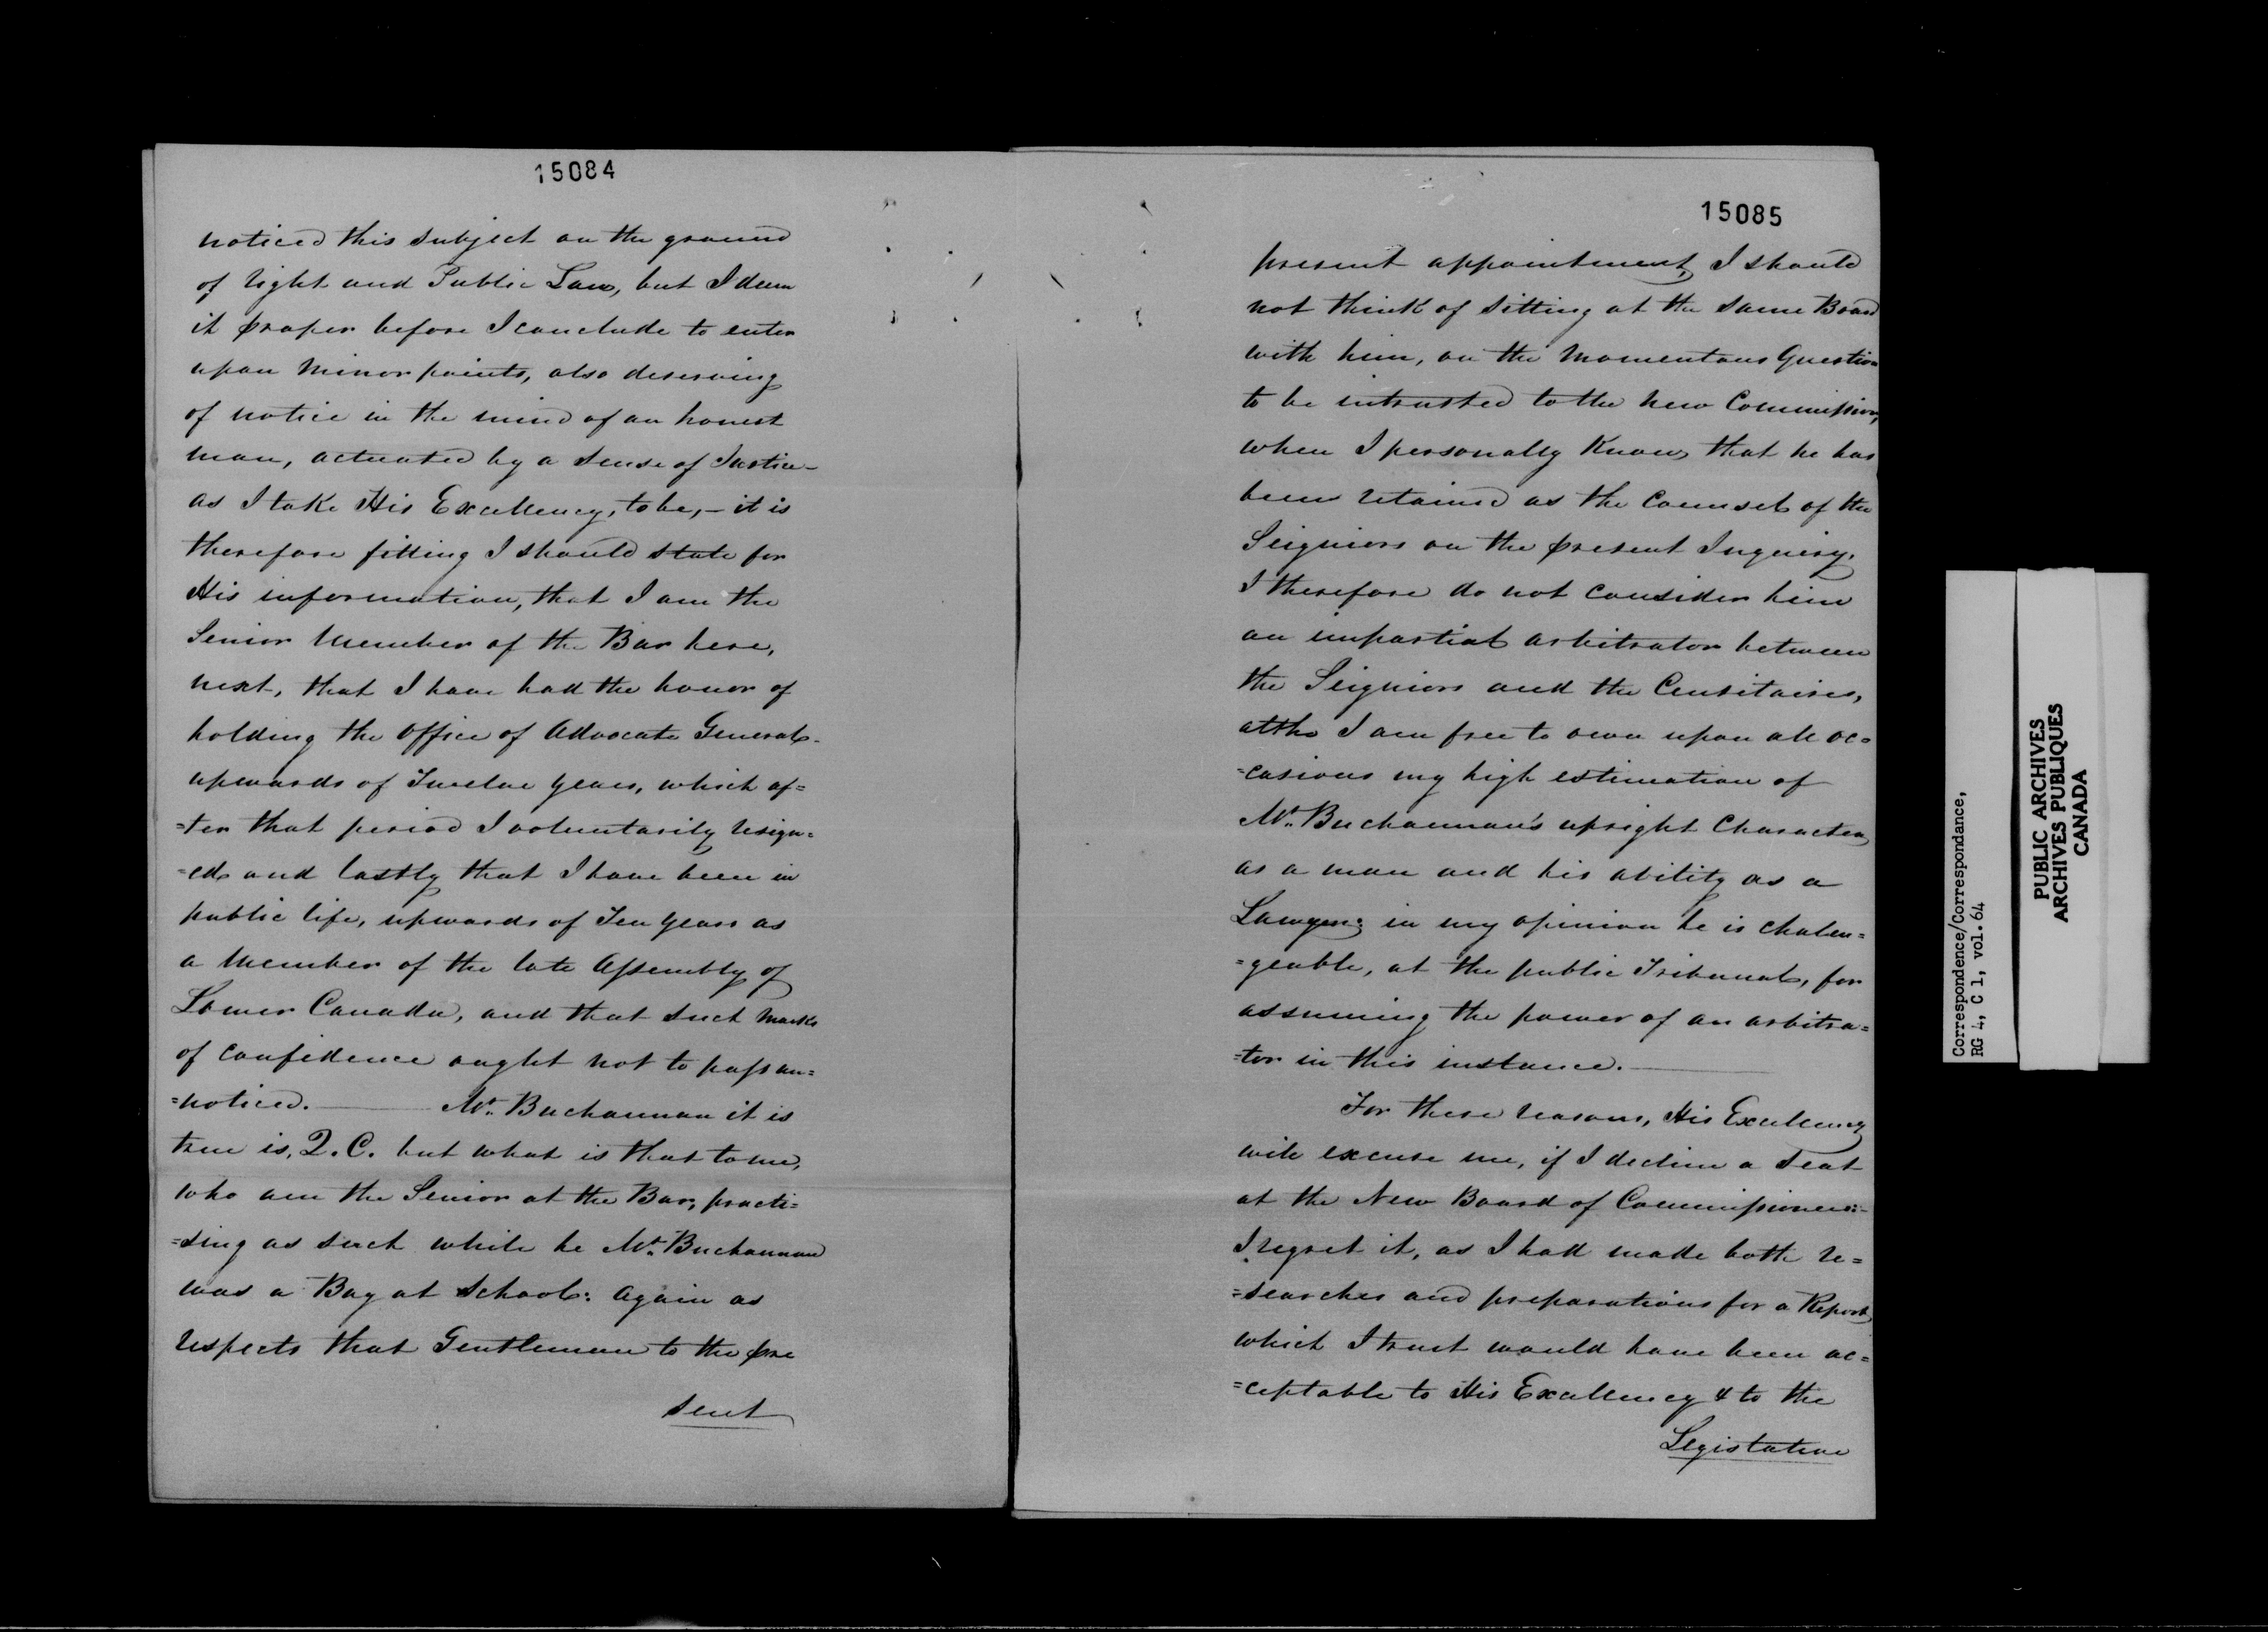 15084
noticed this subject on the ground
of right and Public Law, but I deem
it proper before I conclude to enter
upon minor points, also deserving
of notice in the mind of an honest
man, actuated by a sense of Justice -
as I take His Excellency, to be, - it is
therefore fitting I should state for
His information, that I am the
Senior Member of the Bar here,
next, that I have had the honor of
holding the Office of Advocate General -
upwards of Twelve years, which af=
=ter that period I voluntarily resign=
=ed, and lastly that I have been in
public life, upwards of Ten years as
a Member of the late Assembly of
Lower Canada, and that such marks
of confidence ought not to pass un=
=noticed. Mr. Buchannan it is
true is, Q.C. but what is that to me,
who am the Senior at the Bar, practi=
=sing as such while he Mr. Buchannan
was a Boy at School: Again as
respects that Gentleman to the pre
sent
15085
present appointment, I should
not think of sitting at the same Board
with him, on the momentous Question
to be intrusted to the new Commission,
when I personally know, that he has
been retained as the Counsel of the
Seigniors on the present Inquiry.
I therefore do not consider him
an impartial arbitrator between
the Seigniors and the Censitaires,
altho I am free to own upon all oc=
=casions my high estimation of
Mr. Buchannan's upright Character,
as a man and his ability as a
Lawyer; in my opinion he is chalen=
=geable, at the public Tribunal, for
assuming the power of an arbitra=
=tor in this instance.
For these reasons, His Excellency
will excuse me, if I decline a seat
at the New Board of Commissioners:-
I regret it, as I had made both re=
=searches and preparations for a Report,
which I trust would have been ac=
=ceptable to His Excellency & to the
Legislature
Correspondence/Correspondance,
RG 4, C 1, vol. 64
PUBLIC ARCHIVES
ARCHIVES PUBLIQUES
CANADA